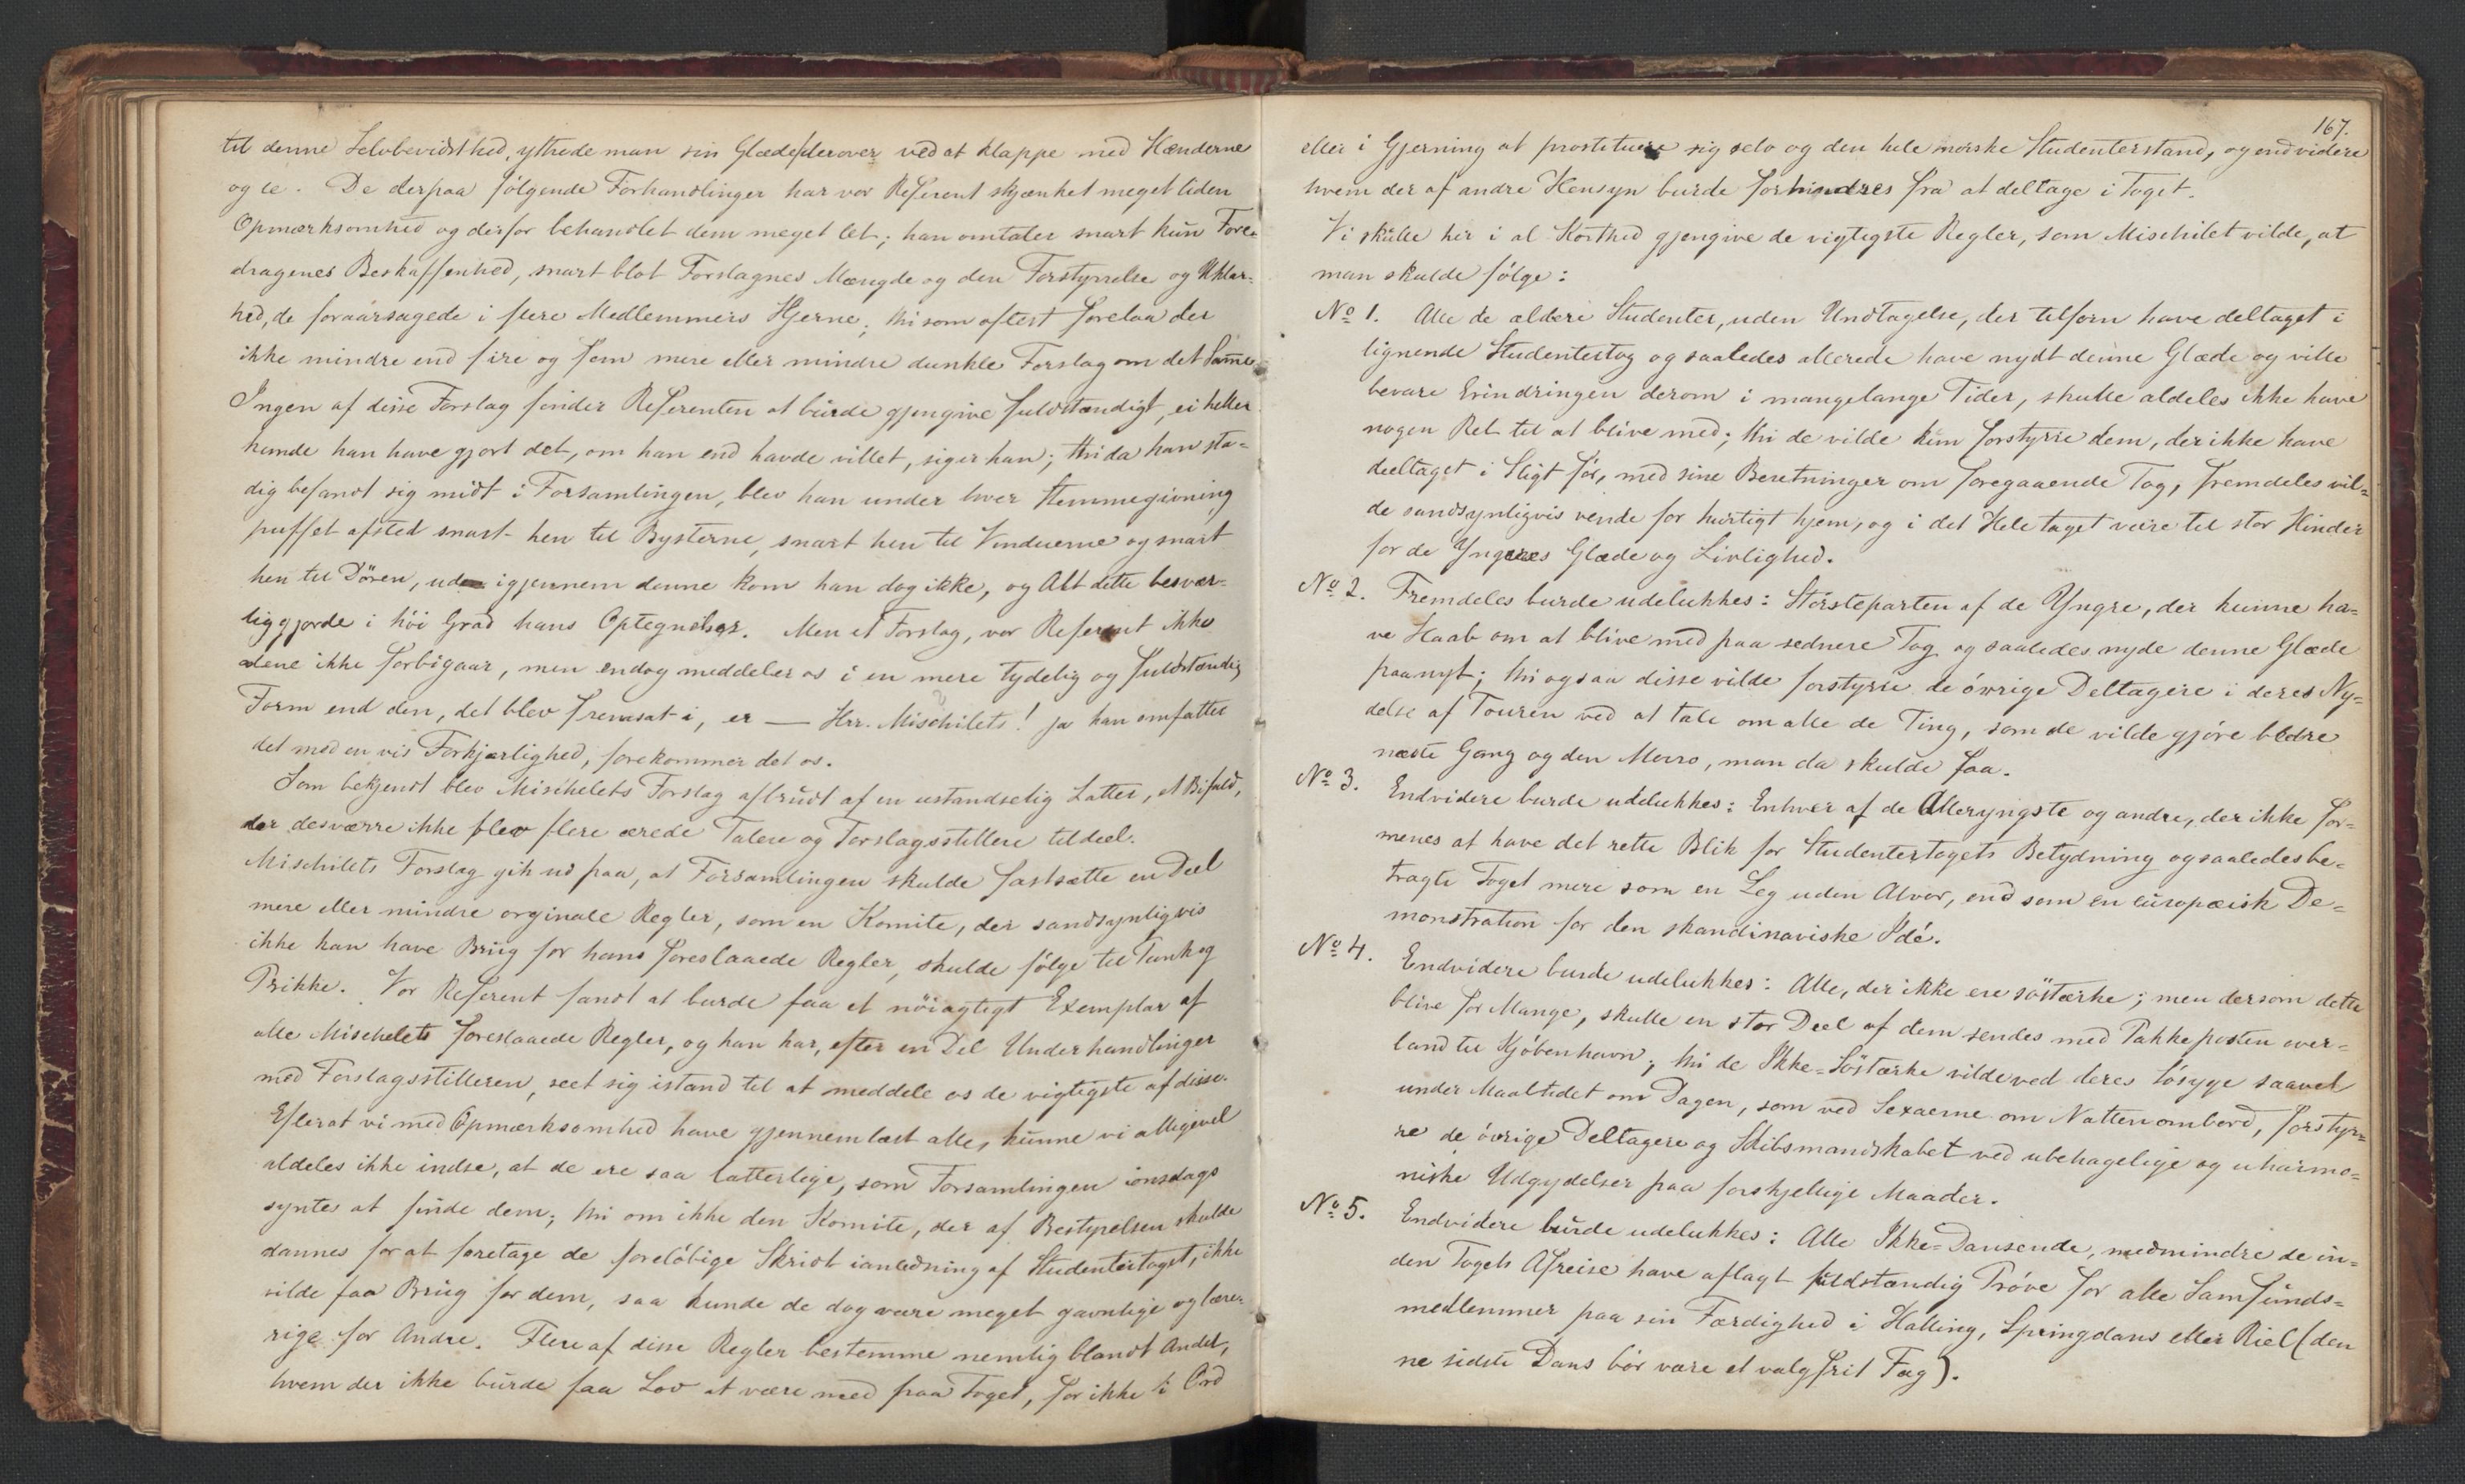 til denne Selvbevidsthed, yttrede man sin Glæde derover ved at klappe med Hænderne
og le. De derpaa følgende Forhandlinger har vor Referent skjænket meget liden
Opmærksomhed og derfor behandlet dem meget let; han omtaler snart kun Fore-
dragenes Beskaffenhed, snart blot Forslagnes Mængde og den Forstyrrelse og Uklar-
hed, de foraarsagede i flere Medlemmers Hjerne; thi som oftest forelaa der
ikke mindre end fire og fem mere eller mindre dunkle Forslag om det Samme.
Ingen af disse Forslag finder Referenten at burde gjengive fuldstændigt, ei heller
kunde han have gjort det, om han end havde villet, siger han; thi da han sta-
dig befandt sig midt i Forsamlingen, blev han under hver Stemmegivning
puffet afsted snart hen til Bysterne, snart hen til Vinduerne og snart
hen til Døren, ud igjennem denne kom han dog ikke, og Alt dette besvær-
liggjorde i høi Grad hans Optegnelser. Men et Forslag, vor Referent ikke
alene ikke forbigaar, men endog meddeler os i en mere tydelig og fuldstændig
Form end den, det blev fremsat i, er — Hrr. Mischelets! ja han omfatter
det med en vis Forkjærlighed, forekommer det os.
Som bekjendt blev Mischelets Forslag afbrudt af en ustandselig Latter, et Bifald,
der desværre ikke blev flere ærede Talere og Forslagsstillere tildeel.
Mischelets Forslag gik ud paa, at Forsamlingen skulde fastsætte en Deel
mere eller mindre orginale Regler, som en Komite, der sandsynligvis
ikke kan have Brug for hans foreslaaede Regler, skulde følge til Punkt og
Prikke. Vor Referent fandt at burde faa et nöiagtigt Exemplar af
alle Mischelets foreslaaede Regler, og han har, efter en Del Underhandlinger
med Forslagsstilleren, seet sig istand til at meddele os de vigtigste af disse.
Efterat vi med Opmærksomhed have gjennemlæst alle, kunne vi alligevel
aldeles ikke indse, at de ere saa latterlige, som Forsamlingen ionsdags
syntes at finde dem; thi om ikke den Komite, der af Bestyrelsen skulde
dannes for at foretage de foreløbige Skridt ianledning af Studentertoget, ikke
vilde faa Brug for dem, saa kunde de dog være meget gavnlige og lære-
rige for Andre. Flere af disse Regler bestemme nemlig blandt Andet,
hvem der ikke burde faa Lov at være med paa Toget, for ikke i Ord
167.
eller i Gjerning at prostituere sig selv og den hele norske Studenterstand, og endvidere
hvem der af andre Hensyn burde forhindres fra at deltage i Toget.
Vi skulle her i al Korthed gjengive de vigtigste Regler, som Mischelet vilde, at
man skulde følge:
No 1. Alle de ældere Studenter, uden Undtagelse, der tilforn have deltaget i
lignende Studentertog og saaledes allerede have nydt denne Glæde og ville
bevare Erindringen derom i mangelange Tider, skulle aldeles ikke have
nogen Ret til at blive med; thi de vilde kun forstyrre dem, der ikke have
deeltaget i Sligt før, med sine Beretninger om foregaaende Tog, fremdeles vil-
de sandsynligvis vende for hurtigt hjem, og i det Hele taget være til stor Hinder
for de Yngres Glæde og Livlighed.
No 2. Fremdeles burde udelukkes: Størsteparten af de Yngre, der kunne ha-
ve Haab om at blive med paa sednere Tog og saaledes nyde denne Glæde
paanyt; thi ogsaa disse vilde forstyrre de øvrige Deltagere i deres Ny-
delse af Touren ved at tale om alle de Ting, som de vilde gjøre bedre
næste Gang og den Morro, man da skulde faa.
No 3. Endvidere burde udelukkes: Enhver af de Alleryngste og andre, der ikke for-
menes at have det rette Blik for Studentertogets Betydning og saaledes be-
tragte Toget mere som en Leg uden Alvor, end som en europæisk De-
monstration for den skandinaviske Idé.
No 4. Endvidere burde udelukkes: Alle, der ikke ere söstærke; men dersom dette
blive for Mange, skulle en stor Deel af dem sendes med Pakkeposten over-
land til Kjøbenhavn; thi de Ikke-Söstærke vilde ved deres Sósyge saavel
under Maaltidet om Dagen, som ved Sexaerne om Natten ombord, forstyr-
re de øvrige Deltagere og Skibsmandskabet ved ubehagelige og uharmo-
niske Udgydelser paa forskjellige Maader.
No 5. Endvidere burde udelukkes: Alle Ikke-Dansende, medmindre de in-
den Togets Afreise have aflagt fuldstændig Prøve for alle Samfunds-
medlemmer paa sin Færdighed i Halling, Springdans eller Riel (den
ne sidste Dans bør være et valgfrit Fag).